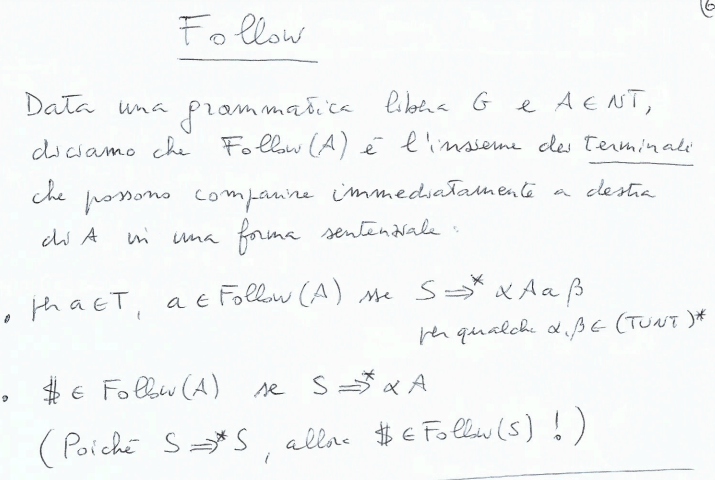 6
Follow
Data una grammatica libera G e A ∈ NT,
diciamo che Follow(A) è l'insieme dei terminali
che possono comparire immediatamente a destra
di A in una forma sentenziale:
• per a ∈ T, a ∈ Follow(A) sse S ⇒* α A a β
per qualche α, β ∈ (T∪NT)*
• $ ∈ Follow(A) se S ⇒* α A
(Poiché S ⇒* S, allora $ ∈ Follow(S)!)